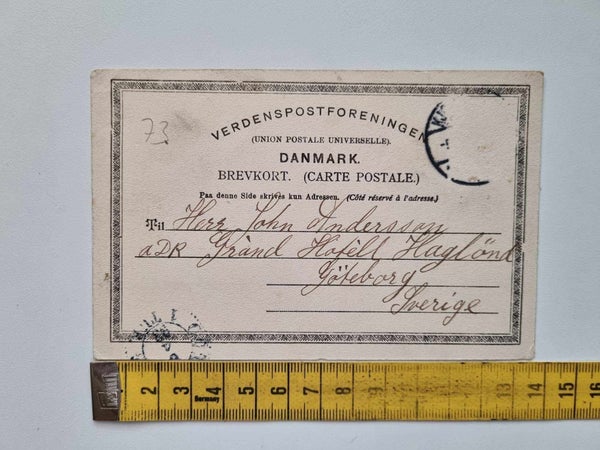 73
VERDENSPOSTFORENINGEN
(UNION POSTALE UNIVERSELLE).
DANMARK.
BREVKORT. (CARTE POSTALE.)
Paa denne Side skrives kun Adressen. (Côté réservé à l'adresse.)
Til Herr John Andersson
adr Gränd Hotêll Haglönd
Göteborg
Sverige
2 3 4 5 6 7 8 9 10 11 12 13 14 15 16
Germany